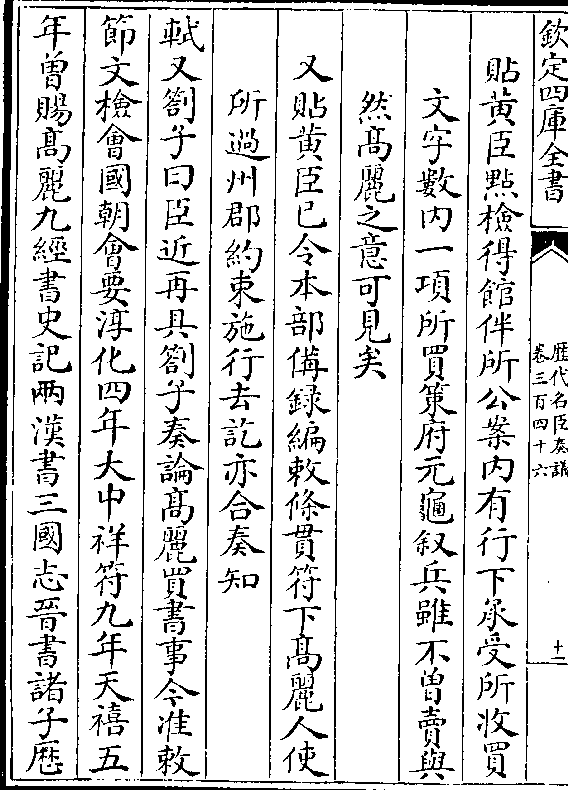 欽定四庫全書
歴代名臣奏議
卷三百四十六
十二
貼黄臣點檢得館伴所公案内有行下承受所收買
文字數内一項所買策府元龜叙兵雖不曾賣與
然髙麗之意可見矣
又貼黄臣已令本部備録編敕條貫符下髙麗人使
所過州郡約束施行去訖亦合奏知
軾又劄子曰臣近再具劄子奏論髙麗買書事今准敕
節文檢會國朝會要淳化四年大中祥符九年天禧五
年曽賜髙麗九經書史記兩漢書三國志晉書諸子歴